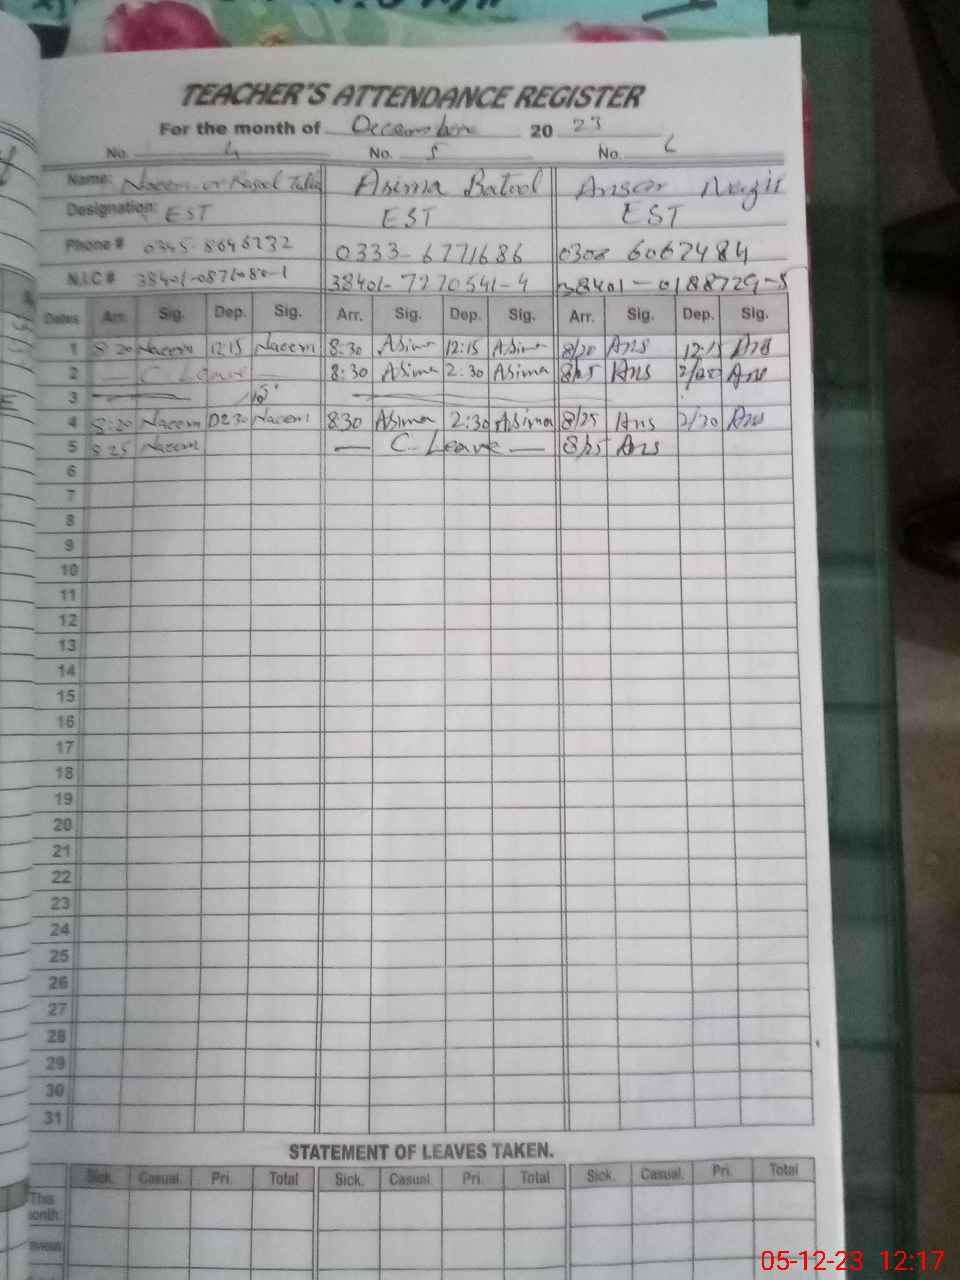 TEACHER'S ATTENDANCE REGISTER
For the month of December 20 23
No. 4 No. 5 No. 6
Name: Naeem Asima Batool Ansar
Designation: EST EST EST
Phone # 0345-8646232 0333-6771686 0300 6062484
N.I.C # 38401-7270541-4 38401-0188729-5
Dates Arr. Sig. Dep. Sig. Arr. Sig. Dep. Sig. Arr. Sig. Dep. Sig.
1 8:20 Naeem 12:15 Naeem 8:30 Asima 12:15 Asima 8/20 Ans 12:15 Ans
2 — C. Leave — 8:30 Asima 2:30 Asima 8/25 Ans Ans
3
4 8:20 Naeem 02:30 Naeem 8:30 Asima 2:30 Asima 8/25 Ans 2/30 Ans
5 8:25 Naeem — C. Leave — 8/25 Ans
6
7
8
9
10
11
12
13
14
15
16
17
18
19
20
21
22
23
24
25
26
27
28
29
30
31
STATEMENT OF LEAVES TAKEN.
Sick. Casual. Pri. Total Sick. Casual Pri. Total Sick. Casual. Pri. Total
This
onth
05-12-23 12:17